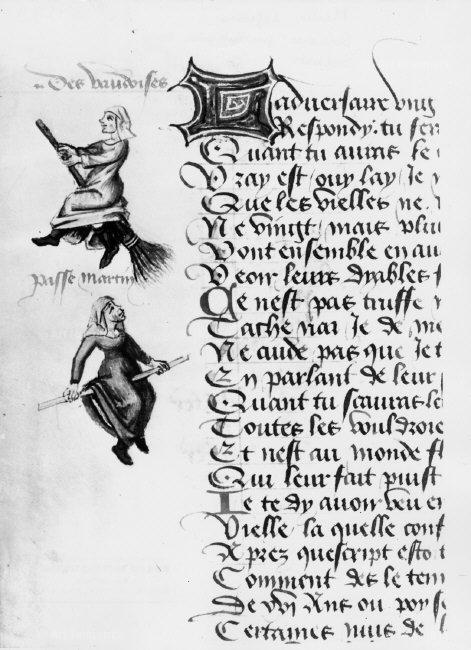 Des vaudoises
passe martin
Ladversaire ung
Respondy. tu
Quant tu auras le
Vray est / ouy lay / Je
Que les vielles ne
Ne vingt / mais plus
Vont ensemble en au
Veoir leurs dyables
Ce nest pas truffe
Je de me
Ne cuide pas que Je t
En parlant de leur
Quant tu scauras le
Toutes les vouldroie
Et nest au monde
Qui leur fait puist
Je te dy avoir veu en
Vielle la quelle conf
Aprez quescript esto
Comment des le tem
De Ans ou poy
Certaines nuis de l